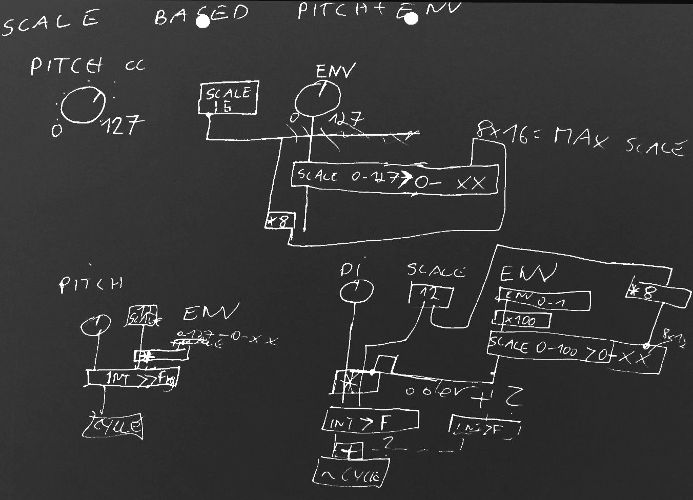 SCALE BASED PITCH + ENV
PITCH CC
0 127
SCALE
16
ENV
0 127
8x16 = MAX SCALE
SCALE 0-127 > 0- XX
*8
PITCH
ENV
INT >> F
CYCLE
PI
SCALE
12
ENV
ENV 0-1
x100
SCALE 0-100 > 0-XX
*8
*
+ 2
INT > F
INT > F
+ 2
~ CYCLE